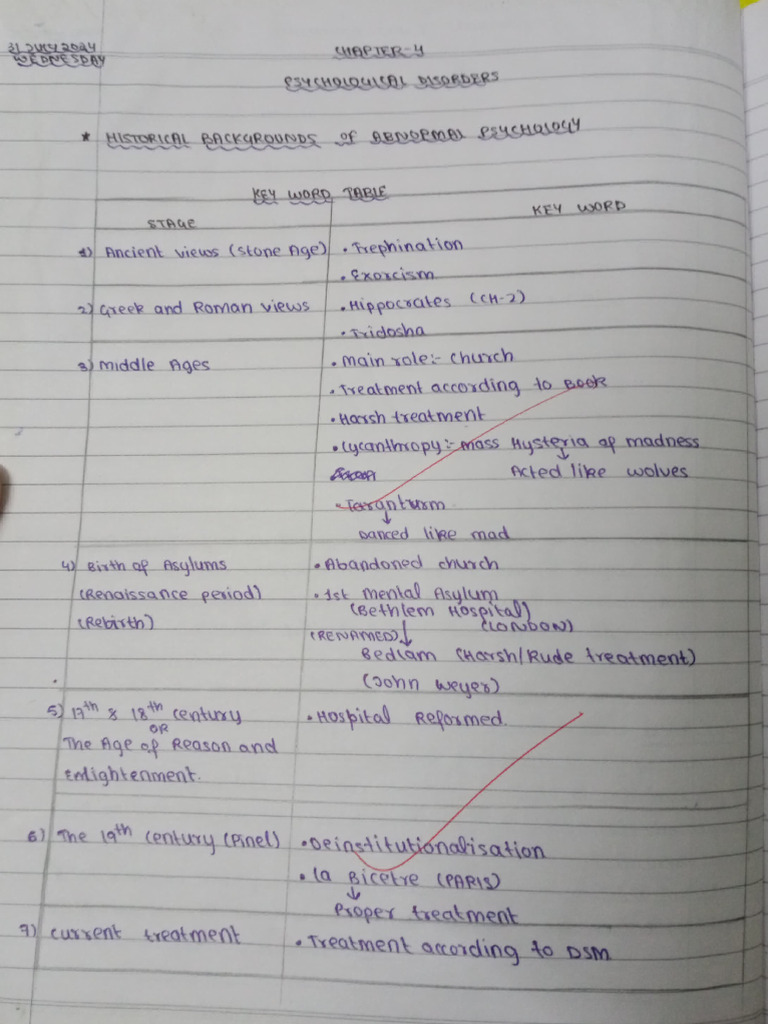 31 JULY 2024
WEDNESDAY
CHAPTER-4
PSYCHOLOGICAL DISORDERS
* HISTORICAL BACKGROUNDS OF ABNORMAL PSYCHOLOGY
KEY WORD TABLE
STAGE KEY WORD
1) Ancient views (Stone Age) • Trephination
• Exorcism
2) Greek and Roman views • Hippocrates (CH-2)
• Tridosha
3) Middle Ages • Main role:- Church
• Treatment according to Book
• Harsh treatment
• Lycanthropy:- Mass Hysteria of madness
↓
Acted like wolves
• Taranturm
↓
Danced like mad
4) Birth of Asylums • Abandoned church
(Renaissance period) • 1st mental Asylum
(Rebirth) (Bethlem Hospital)
(LONDON)
(RENAMED) ↓
Bedlam (Harsh/Rude treatment)
(John Weyer)
5) 17th & 18th century • Hospital Reformed.
OR
The Age of Reason and
Enlightenment.
6) The 19th century (Pinel) • Deinstitutionalisation
• La Bicetre (PARIS)
↓
Proper treatment
7) Current treatment • Treatment according to DSM